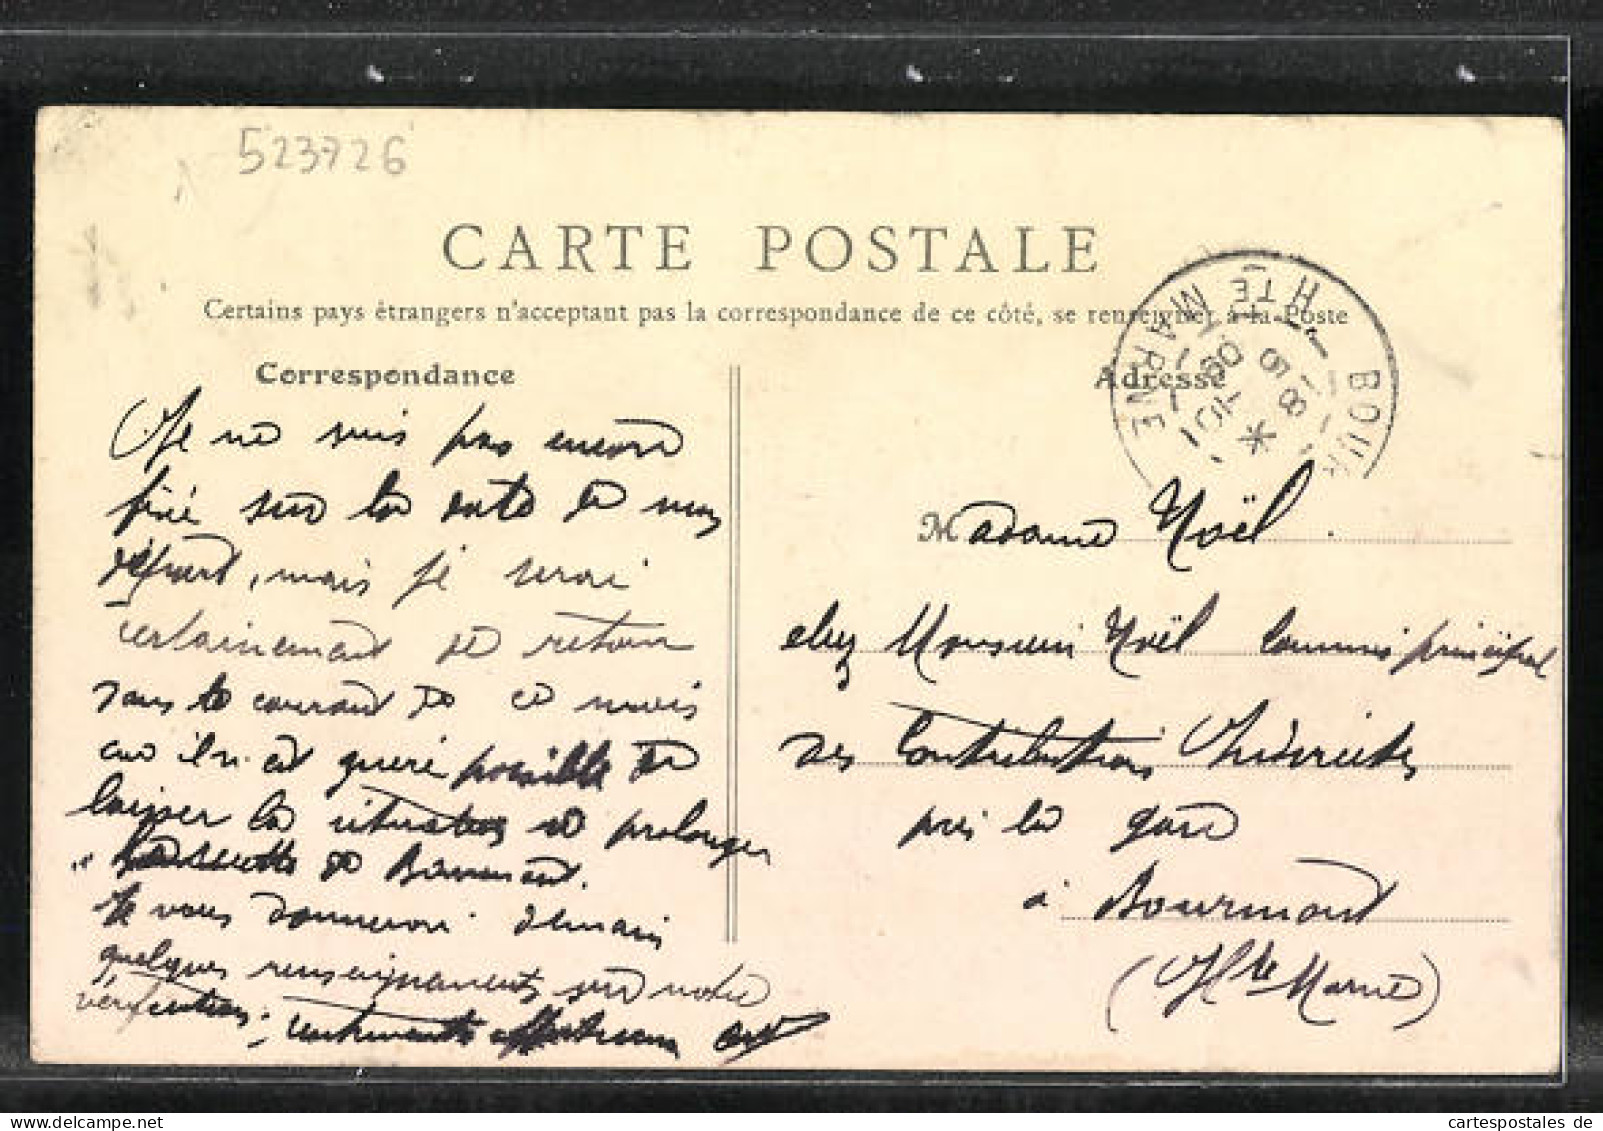 523726
CARTE POSTALE
Certains pays étrangers n'acceptent pas la correspondance de ce côté, se renseigner à la Poste
Correspondance
Adresse
HTE MARNE
BOUR
8 - 6
09
Je ne suis pas encore
fixé sur la date de mon
départ, mais je serai
certainement de retour
dans le courant de ce mois
car il n'est guère possible de
laisser la situation et prolonger
de
Je vous donnerai demain
quelques renseignements sur notre
vérification; sentiments affectueux
Madame Noël.
chez Monsieur Noël Commis principal
des Contributions Indirectes
près la gare
à Bourmont
(Hte Marne)
cartespostales de